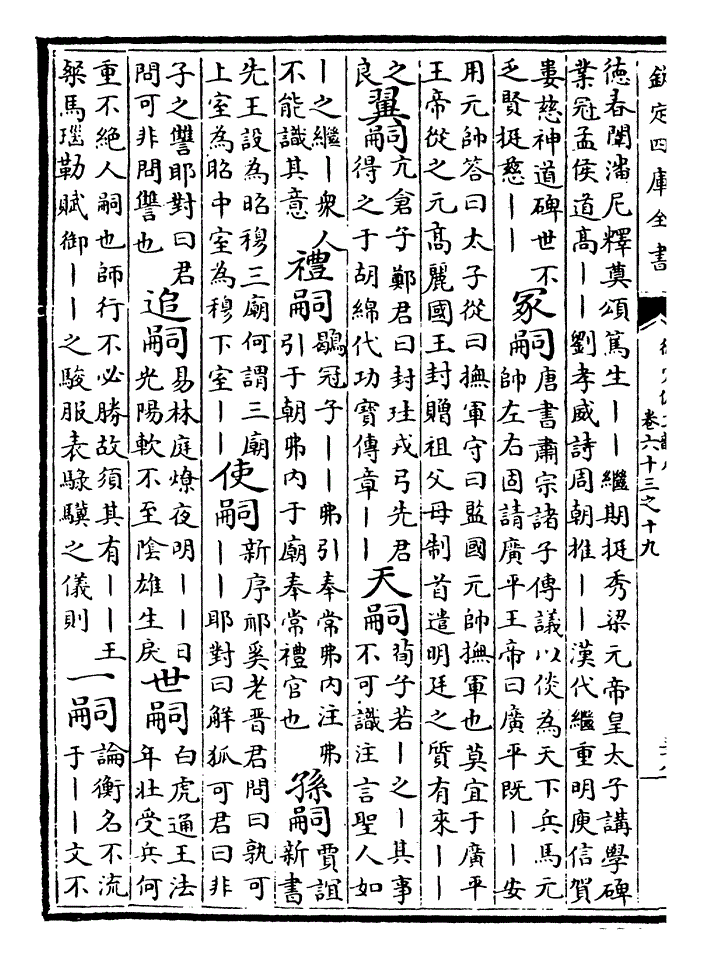 欽定四庫全書
卷六十三之十九
德春闈瀋尼釋奠頌篤生丨丨繼期挺秀梁元帝皇太子講學碑
業冠孟侯道高丨丨劉孝威詩周朝推丨丨漢代繼重明庾信賀
婁慈神道碑世不
乏賢挺慈丨丨
冢嗣
唐書肅宗諸子傳議以倓為天下兵馬元
帥左右固請廣平王帝曰廣平既丨丨安
用元帥答曰太子從曰撫軍守曰監國元帥撫軍也莫宜于廣平
王帝從之元高麗國王封贈祖父母制首遣明廷之質有來丨丨
之
良
翼嗣
亢倉子鄭君曰封珪戎弓先君
得之于胡綿代功寶傳章丨丨
天嗣
荀子若丨之丨其事
不可識注言聖人如
丨之繼丨衆人
不能識其意
禮嗣
鶡冠子丨丨弗引奉常弗内注弗
引于朝弗内于廟奉常禮官也
孫嗣
賈誼
新書
先王設為昭穆三廟何謂三廟
上室為昭中室為穆下室丨丨
使嗣
新序祁奚老晉君問曰孰可
丨丨耶對曰解狐可君曰非
子之讐耶對曰君
問可非問讐也
追嗣
易林庭燎夜明丨丨日
光陽軟不至陰雄生戾
世嗣
白虎通王法
年壯受兵何
重不絶人嗣也師行不必勝故須其有丨丨王
粲馬瑙勒賦御丨丨之駿服表騄驥之儀則
一嗣
論衡名不流
于丨丨文不